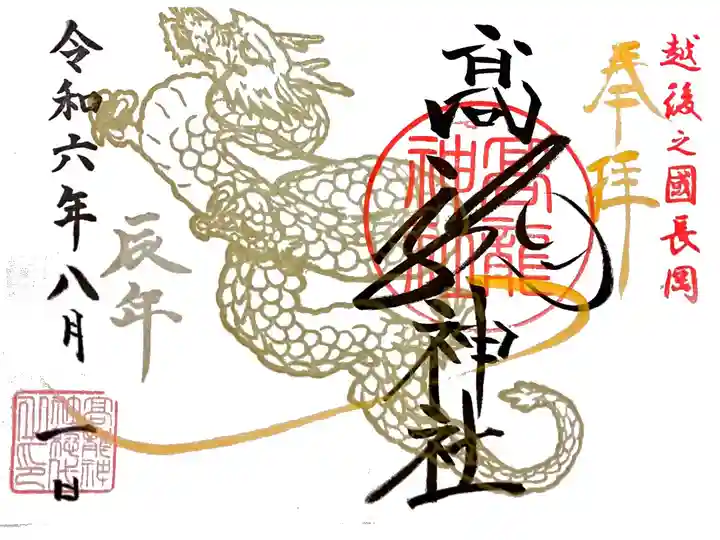 越後之國長岡
奉拝
髙龍神社
高龍
神社
辰年
令和六年八月一日
高龍神